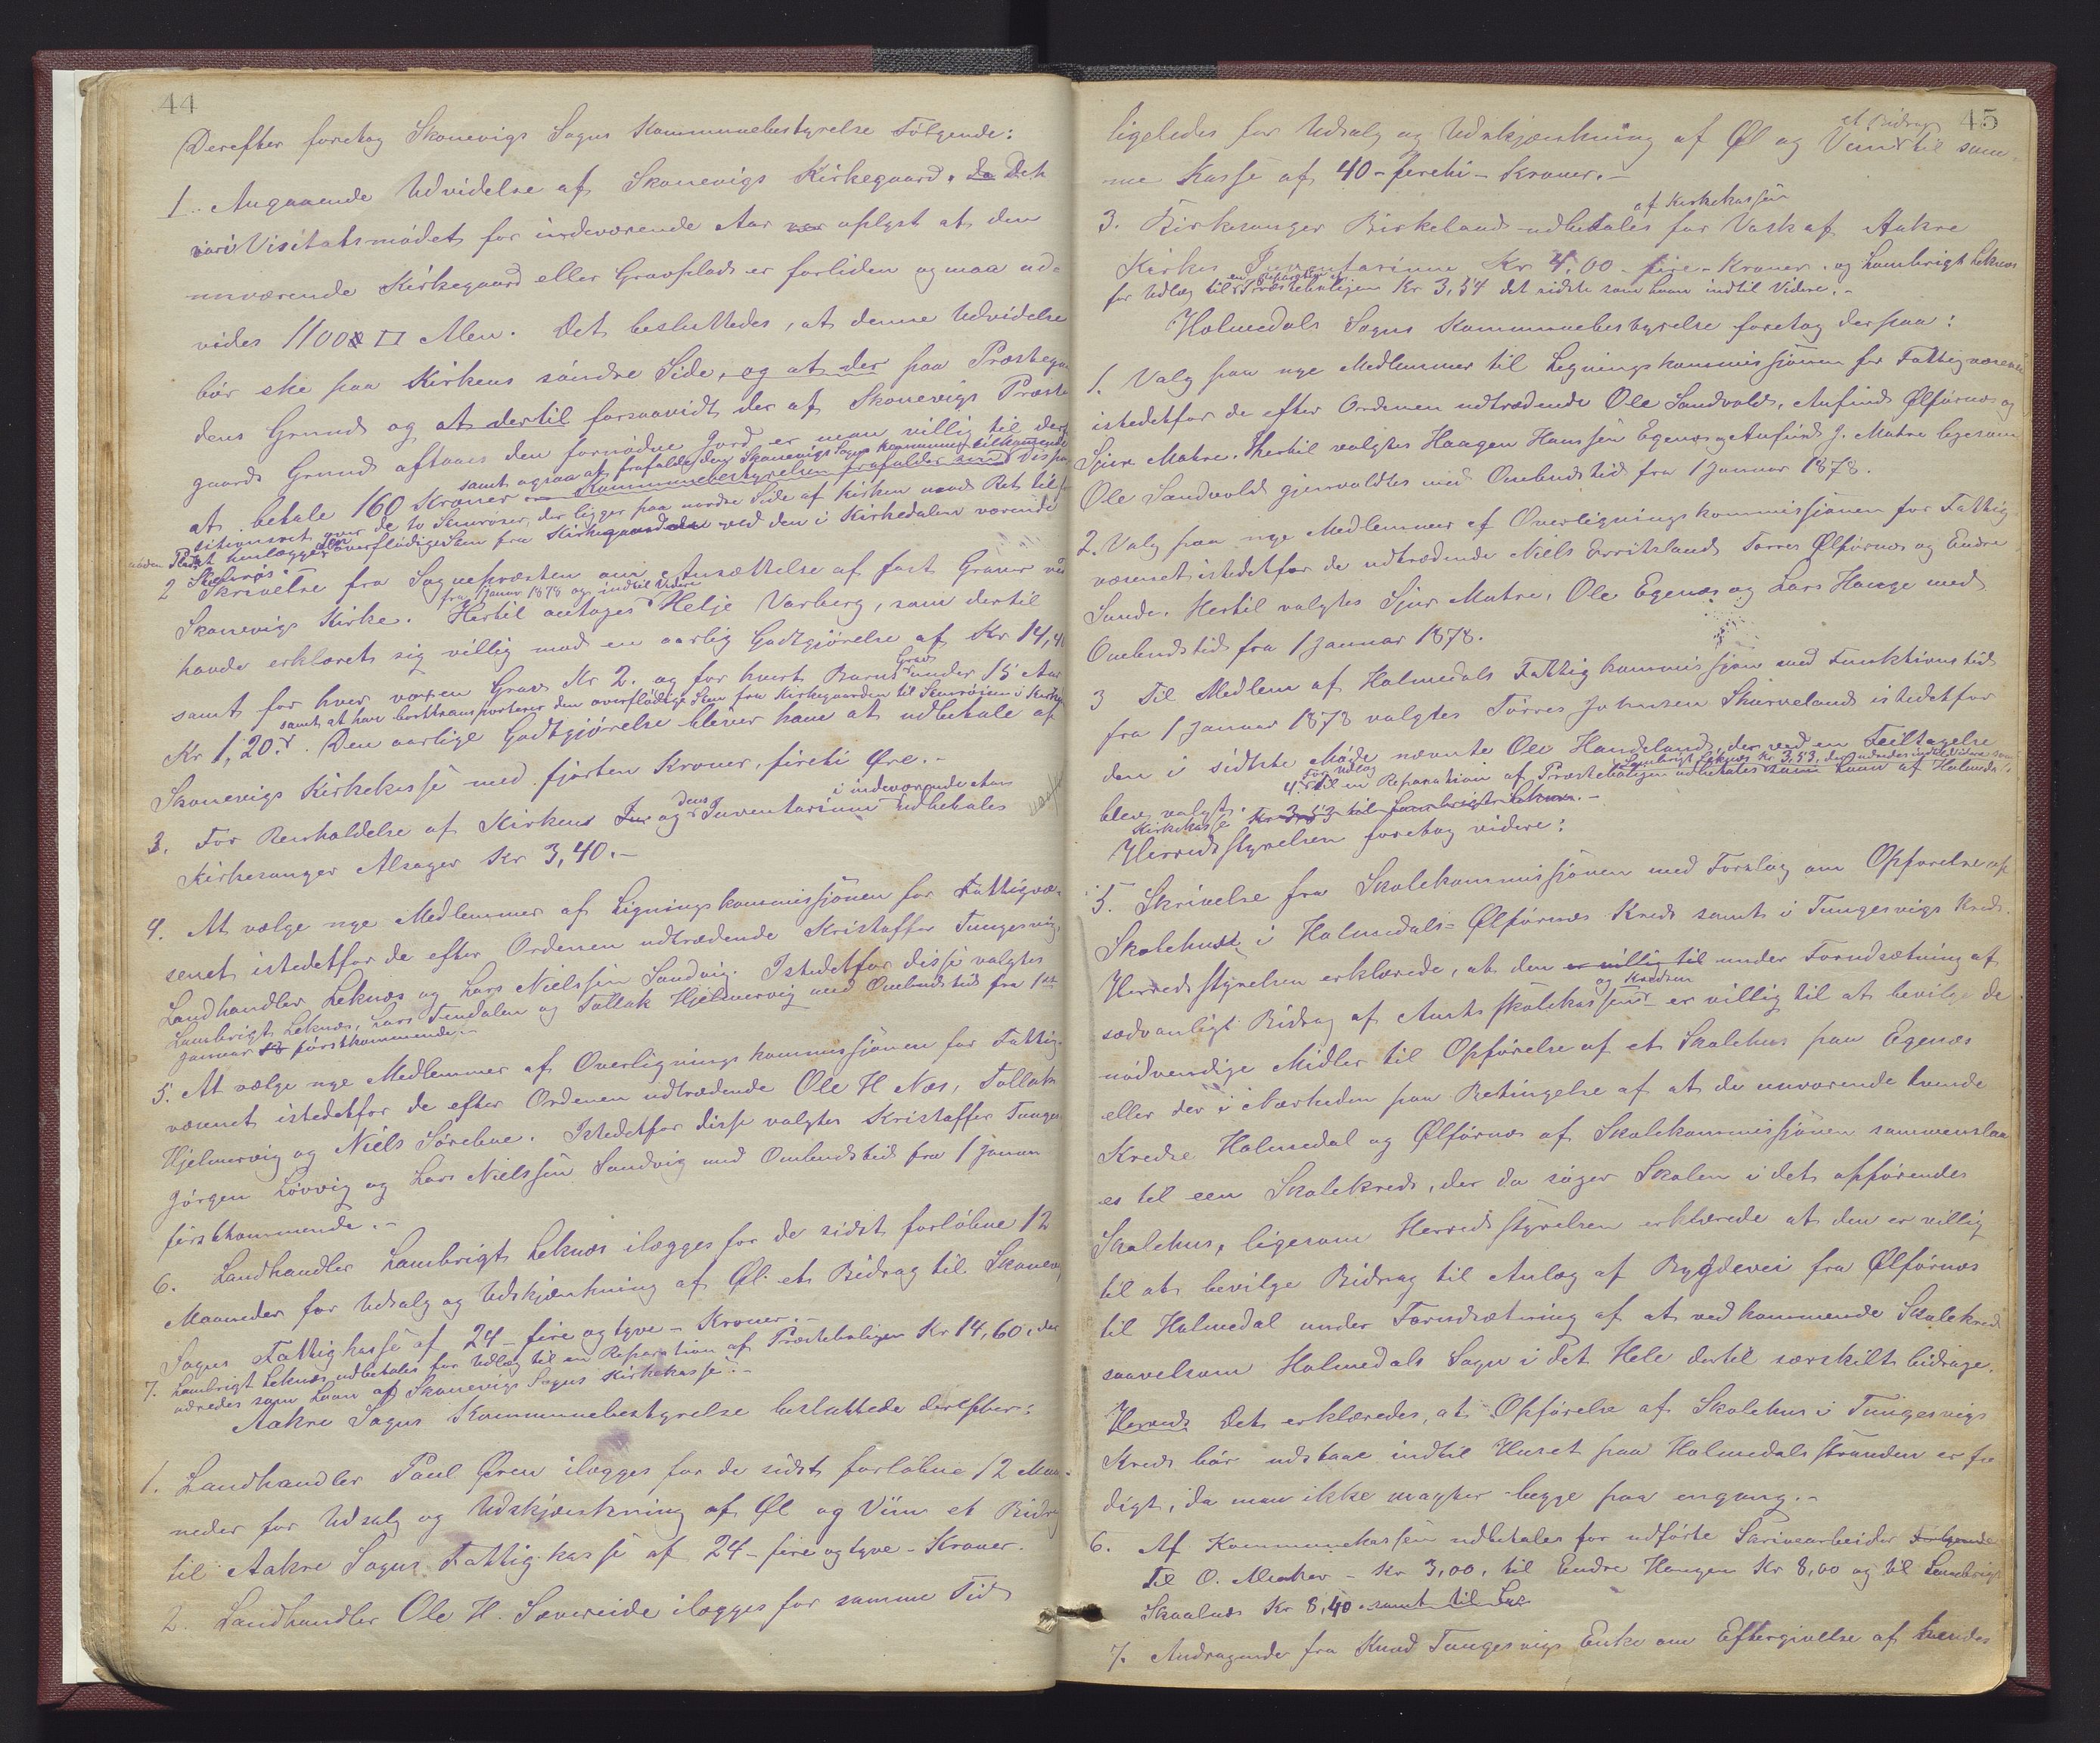 44
Derefter foretog Skonevigs Sogns Kommunebestyrelse Følgende:
1. Angaaende Udvidelse af Skonevigs Kirkegaard. da Det
var i Visitatsmødet for indeværende Aar var oplyst at den
nuværende Kirkegaard eller Gravplads er forliden og maa ud-
vides 1100 □ Alen. Det besluttedes, at denne Udvidelse
bør ske paa Kirkens søndre Side, og at der paa Præstegaar
dens Grund og at dertil forsaavidt der af Skonevigs Præste
gaards Grund aftaaes den fornødne Jord er man villig til derfor
samt ogsaa at frafalde den Skonevigs Sogns Kommune tilkommende
at betale 160 Kroner Kommunebestyrelsen frafalder sind Dispo
sitionsret over de to Stenrøser, der ligger paa nordre Side af Kirken mod Ret til
anden Plads at henlægge den overflødige Sten fra Kirkegaarden ved den i Kirkedalen værende
Stenrøs.
2 Skrivelse fra Sognepræsten om Ansættelse af fast Graver ved
fra 1 Januar 1878 og indtil Videre
Skonevigs Kirke. Hertil antages Helje Varberg, som dertil
havde erklæret sig villig mod en aarlig Godtgjørelse af Kr 14,40
samt for hver voxen Grav Kr 2. og for hvert Barns Grav under 15 Aar
samt at han borttransporterer den overflødige Sten fra Kirkegaarden til Stenrøsen i Kirkeda
Kr 1,20. Den aarlige Godtgjørelse bliver ham at udbetale af
Skonevigs Kirkekasse med fjorten Kroner, fireti Øre.-
3. For Renholdelse af Kirken og dens Inventarium i indeværende Aar udbetales
Kirkesanger Alsager Kr 3,40.-
4. At vælge nye Medlemmer af Ligningskommissjonen for Fattigvæ-
senet istedetfor de efter Ordenen udtrædende Kristoffer Tungesvig,
Landhandler Leknæs og Lars Nielssen Sandvig. Istedetfor disse valgtes
Lambrigt Leknæs, Lars Tendalen og Tollak Hjelmervig med Ombudstid fra 1ste
Januar 18 førstkommende.-
5. At vælge nye Medlemmer af Overligningskommissjonen for Fattig-
væsenet istedetfor de efter Ordenen udtrædende Ole H Næs, Tollak
Hjelmervig og Niels Sørebøe. Istedetfor disse valgtes Kristoffer Tunges
Jørgen Løvvig og Lars Nielssen Sandvig med Ombudstid fra 1 Januar
førstkommende.-
6. Landhandler Lambrigt Leknæs ilægges for de sidst forløbne 12
Maaneder for Udsalg og Udskjænkning af Øl et Bidrag til Skonevigs
Sogns Fattigkasse af 24 - fire og tyve - Kroner.-
7. Lambrigt Leknæs udbetales for Udlæg til en Reparation af Præsteboligen Kr 14,60, der
udredes som Laan af Skonevigs Sogns Kirkekasse.-
Aakre Sogns Kommunebestyrelse besluttede derefter:
1. Landhandler Paul Øren ilægges for de sidst forløbne 12 Maa-
neder for Udsalg og Udskjænkning af Øl og Viin et Bidrag
til Aakre Sogns Fattigkasse af 24 - fire og tyve - Kroner.
2. Landhandler Ole H. Sævereide ilægges for samme Tid
45
ligeledes for Udsalg og Udskjænkning af Øl og Viin et Bidrag til sam-
me Kasse af 40 - fireti - Kroner.-
3. Kirkesanger Birkeland udbetales af Kirkekassen for Vask af Aakre
Kirkes Inventarium Kr 4,00 - fire - Kroner. og Lambrigt Leknæs
for Udlæg til en Reparation af Præsteboligen Kr 3,54 det sidste som Laan indtil Videre.-
Holmedals Sogns Kommunebestyrelse foretog derpaa:
1. Valg paa nye Medlemmer til Ligningskommissjonen for Fattigvæsenet
istedetfor de efter Ordenen udtrædende Ole Sandvold, Anfind Ølfernæs og
Sjur Matre. Hertil valgtes Haagen Hanssen Egenæs og Anfind J. Matre ligesom
Ole Sandvold gjenvaldtes med Ombudstid fra 1 Januar 1878.
2. Valg paa nye Medlemmer af Overligningskommissjonen for Fattig-
væsenet, istedetfor de udtrædende Niels Erritsland, Torres Ølfernæs og Endre
Sunde. Hertil valgtes Sjur Matre, Ole Egenæs og Lars Hauge med
Ombudstid fra 1 Januar 1878.
3 Til Medlem af Holmedals Fattigkommissjon med Funktionstid
fra 1 Januar 1878 valgtes Tørres Johnsen Skurveland istedetfor
den i sidste Møde nævnte Ole Handeland, der ved en Feiltagelse
blev valgt.
4. For Udlæg til en Reparation af Præsteboligen udbetales Lambrigt Leknæs Kr 3,53, der udredes indtil Videre som Laan af Holmeda
Kirkekasse Kr 3,53 til Lambrigt Leknæs.-
Herredsstyrelsen foretog videre:
5. Skrivelse fra Skolekommissjonen med Forslag om Opførelse af
Skolehus i Holmedals-Ølfernæs Kreds samt i Tungesvigs Kreds.
Herredsstyrelsen erklærede, at den er villig til under Forudsætning af
sædvanligt Bidrag af Amtsskolekassen og Kredsen er villig til at bevilge de
nødvendige Midler til Opførelse af et Skolehus paa Egenæs
eller der i Nærheden paa Betingelse af at de nuværende tvende
Kredse Holmedal og Ølfernæs af Skolekommissjonen sammenslaa
es til een Skolekreds, der da søger Skolen i det opførendes
Skolehus, ligesom Herredsstyrelsen erklærede at den er villig
til at bevilge Bidrag til Anlæg af Bygdevei fra Ølfernæs
til Holmedal under Forudsætning af at vedkommende Skolekreds
saavelsom Holmedals Sogn i det Hele dertil særskilt bidrage.
Herreds Det erklæredes, at Opførelse af Skolehus i Tungesvigs
Kreds bør udstaae indtil Huset paa Holmedalsstranden er fær
digt, da man ikke magter begge paa engang.-
6. Af Kommunekassen udbetales for udførte Skrivearbeider Følgende
Til O. Meaker - Kr 3,00, til Endre Haugen Kr 8,00 og til Lambrigt
Skaalnæs Kr 8,40. samt til Lar
7. Andragende fra Knud Tungesvigs Enke om Eftergivelse af hendes